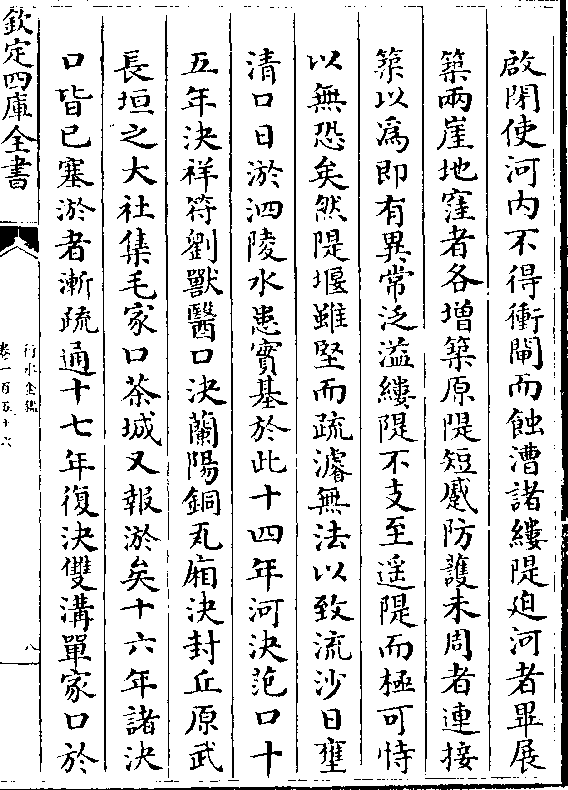 啟閉使河内不得衝閘而蝕漕諸縷隄廹河者畢展
築兩崖地窪者各增築原隄短蹙防護未周者連接
築以為即有異常泛溢縷隄不支至遥隄而極可恃
以無恐矣然隄堰雖堅而疏濬無法以致流沙日壅
清口日淤泗陵水患實基於此十四年河決范口十
五年決祥符劉獸醫口決蘭陽銅瓦廂決封丘原武
長垣之大社集毛家口茶城又報淤矣十六年諸決
口皆已塞淤者漸疏通十七年復決雙溝單家口於
欽定四庫全書
行水金鑑
卷一百五十六
八